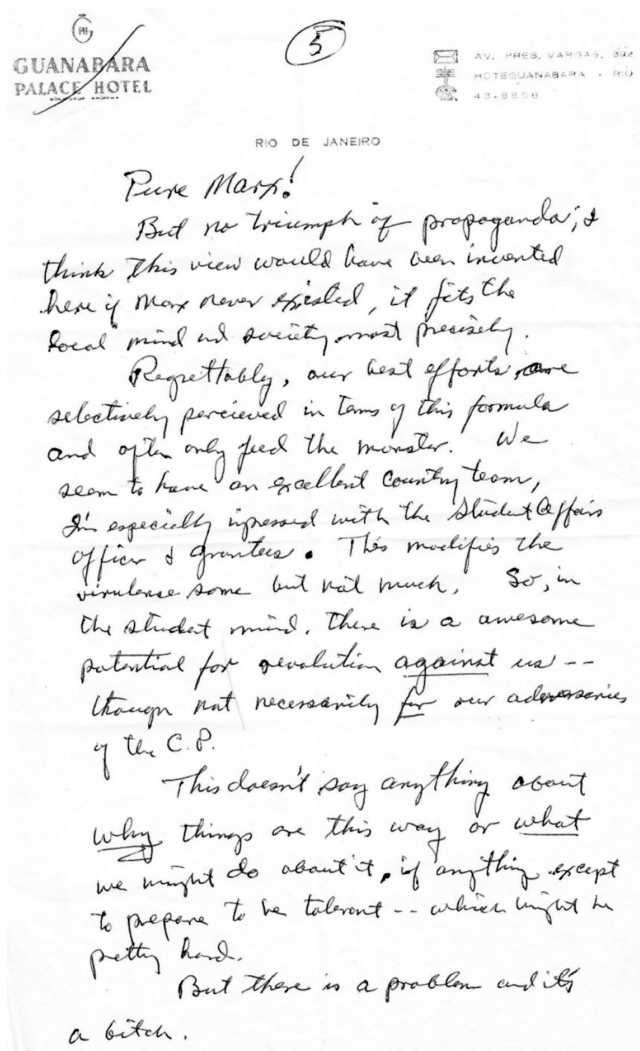 5
GUANABARA
PALACE HOTEL
AV. PRES. VARGAS, 392
HOTEGUANABARA - RIO
43-8808
RIO DE JANEIRO
Pure Marx!
But no triumph of propaganda; I
think this view would have been invented
here if Marx never existed, it fits the
local mind and society most precisely.
Regrettably, our best efforts are
selectively percieved in terms of this formula
and often only feed the monster. We
seem to have an excellent country team,
I'm especially impressed with the Student Affairs
officer & grantees. This modifies the
virulense some but not much. So, in
the student mind, there is a awesome
potential for revolution against us --
though not necessarily for our adversaries
of the C.P.
This doesn't say anything about
why things are this way or what
we might do about it, if anything except
to prepare to be tolerant -- which might be
pretty hard.
But there is a problem and it's
a bitch.